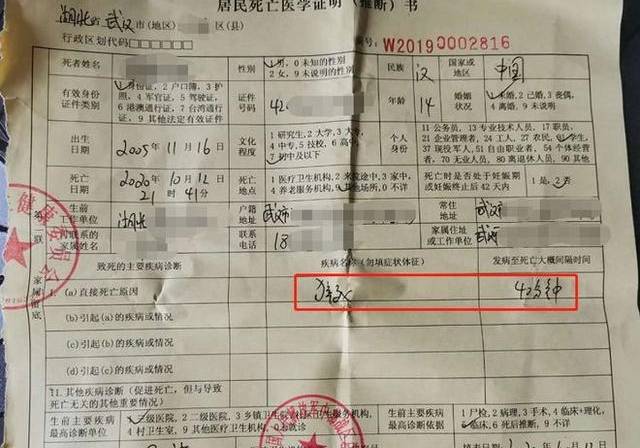 居民死亡医学证明（推断）书
湖北省 武汉市(地区) 区(县)
行政区划代码 编号: W20190002816
死者姓名 性别 1男, 0未知的性别 2女, 9未说明的性别 民族 汉 国家或地区 中国
有效身份证件类别 1身份证, 2户口簿, 3护照, 4军官证, 5驾驶证, 6港澳通行证, 7台湾通行证, 9其他法定有效证件 证件号码 42 年龄 14 婚姻状况 1未婚, 2已婚, 3丧偶, 4离婚, 9未说明
出生日期 2005年11月16日 文化程度 1研究生, 2大学, 3大专, 4中专, 5技校, 6高中, 7初中及以下 个人身份 11公务员, 13专业技术人员, 17职员, 21企业管理者, 24工人, 27农民, 31学生, 37现役军人, 51自由职业者, 54个体经营者, 70无业人员, 80离退休人员, 90其他
死亡日期 2020年10月12日 21时41分 死亡地点 1医疗卫生机构, 2来院途中, 3家中, 4养老服务机构, 9其他场所, 0不详 死亡时是否处于妊娠期或妊娠终止后42天内 1是, 2否
生前工作单位 湖北 户籍地址 武汉市 常住地址 武汉市
联系的家属姓名 联系电话 18 家属住址或工作单位 武汉
致死的主要疾病诊断 疾病名称(勿填症状体征) 发病至死亡大概间隔时间
I.(a)直接死亡原因 分钟
(b)引起(a)的疾病或情况
(c)引起(b)的疾病或情况
(d)引起(c)的疾病或情况
II.其他疾病诊断(促进死亡,但与导致死亡无关的其他重要情况)
生前主要疾病最高诊断单位 三级医院, 2二级医院, 3乡镇卫生院 4村卫生室, 9其他医疗卫生机构, 0未就诊 生前主要疾病最高诊断依据 1尸检, 2病理, 3手术, 4临床+理化, 5临床, 6死后推断, 9不详